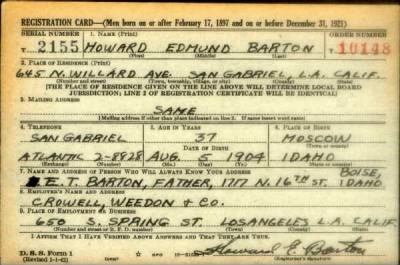 REGISTRATION CARD—(Men born on or after February 17, 1897 and on or before December 31, 1921)
SERIAL NUMBER 1. NAME (Print) ORDER NUMBER
T 2155 HOWARD EDMUND BARTON T 10148
(First) (Middle) (Last)
2. PLACE OF RESIDENCE (Print)
645 N. WILLARD AVE. SAN GABRIEL, L.A. CALIF.
(Number and street) (Town, township, village, or city) (County) (State)
[THE PLACE OF RESIDENCE GIVEN ON THE LINE ABOVE WILL DETERMINE LOCAL BOARD
JURISDICTION; LINE 2 OF REGISTRATION CERTIFICATE WILL BE IDENTICAL]
3. MAILING ADDRESS
SAME
[Mailing address if other than place indicated on line 2. If same insert word same]
4. TELEPHONE 5. AGE IN YEARS 6. PLACE OF BIRTH
SAN GABRIEL 37 MOSCOW
DATE OF BIRTH (Town or county)
ATLANTIC 2-8928 AUG. 5 1904 IDAHO
(Exchange) (Number) (Mo.) (Day) (Yr.) (State or country)
7. NAME AND ADDRESS OF PERSON WHO WILL ALWAYS KNOW YOUR ADDRESS BOISE,
E.T. BARTON, FATHER, 1717 N. 16TH ST. IDAHO
8. EMPLOYER'S NAME AND ADDRESS
CROWELL, WEEDON & CO.
9. PLACE OF EMPLOYMENT OR BUSINESS
650 S. SPRING ST. LOS ANGELES L.A. CALIF
(Number and street or R. F. D. number) (Town) (County) (State)
I AFFIRM THAT I HAVE VERIFIED ABOVE ANSWERS AND THAT THEY ARE TRUE.
D. S. S. Form 1 Howard E Barton
(Revised 1-1-42) (Registrant's signature)